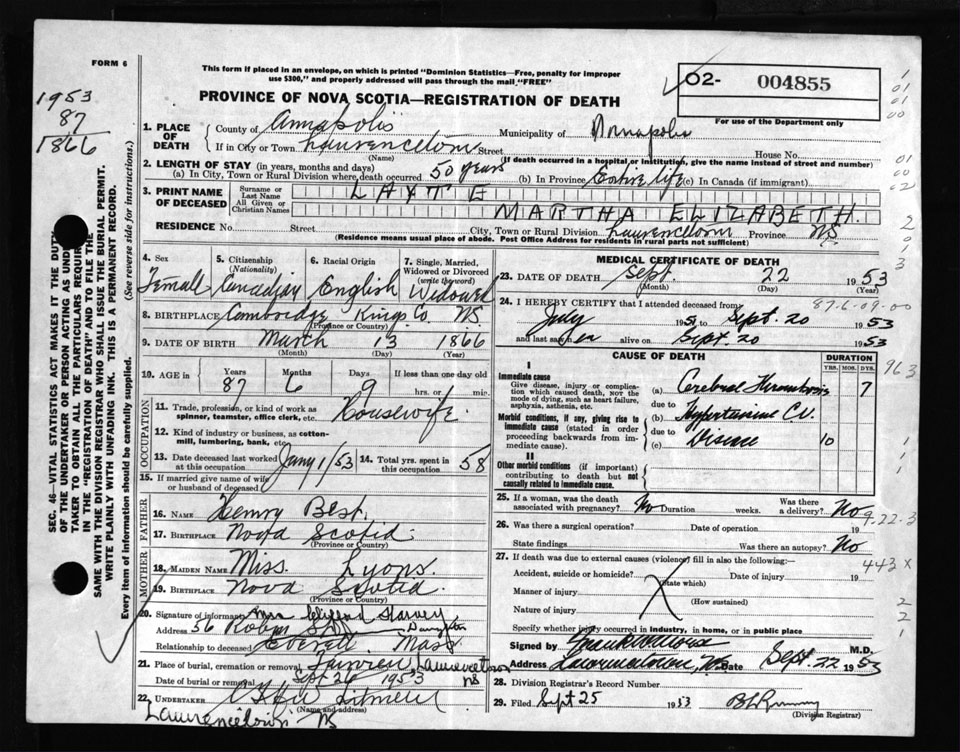 FORM 6
This form if placed in an envelope, on which is printed "Dominion Statistics—Free, penalty for improper
use $300," and properly addressed will pass through the mail "FREE"
O2- 004855
For use of the Department only
PROVINCE OF NOVA SCOTIA—REGISTRATION OF DEATH
1953
87
1866
SEC. 46—VITAL STATISTICS ACT MAKES IT THE DUTY
OF THE UNDERTAKER OR PERSON ACTING AS UNDER
TAKER TO OBTAIN ALL THE PARTICULARS REQUIR
IN THE "REGISTRATION OF DEATH" AND TO FILE THE
SAME WITH THE DIVISION REGISTRAR WHO SHALL ISSUE THE BURIAL PERMIT.
WRITE PLAINLY WITH UNFADING INK. THIS IS A PERMANENT RECORD.
Every item of information should be carefully supplied. (See reverse side for instructions.)
1. PLACE OF DEATH
County of Annapolis Municipality of Annapolis
If in City or Town Lawrencetown Street House No.
(Name) (If death occurred in a hospital or institution, give the name instead of street and number)
2. LENGTH OF STAY (in years, months and days)
(a) In City, Town or Rural Division where death occurred 50 years (b) In Province Entire life (c) In Canada (if immigrant)
3. PRINT NAME OF DECEASED
Surname or Last Name LAYTE
All Given or Christian Names MARTHA ELIZABETH
RESIDENCE No. Street City, Town or Rural Division Lawrencetown Province NS
(Residence means usual place of abode. Post Office Address for residents in rural parts not sufficient)
4. Sex Female
5. Citizenship (Nationality) Canadian
6. Racial Origin English
7. Single, Married, Widowed or Divorced (write the word) Widowed
8. BIRTHPLACE Cambridge Kings Co NS
(Province or Country)
9. DATE OF BIRTH March 13 1866
(Month) (Day) (Year)
10. AGE Years 87 Months 6 Days 9 If less than one day old hrs. or min.
OCCUPATION
11. Trade, profession, or kind of work as spinner, teamster, office clerk, etc. Housewife
12. Kind of industry or business, as cotton-mill, lumbering, bank, etc.
13. Date deceased last worked at this occupation Jany 1/53
14. Total yrs. spent in this occupation 58
15. If married give name of wife or husband of deceased
FATHER
16. Name Henry Best
17. BIRTHPLACE Nova Scotia
(Province or Country)
MOTHER
18. MAIDEN NAME Miss Lyons
19. BIRTHPLACE Nova Scotia
(Province or Country)
20. Signature of informant Mrs
Address 56
Relationship to deceased Daughter
Everett Mass
21. Place of burial, cremation or removal Fairview Lawrencetown
Date of burial or removal Sept 26 1953 NS
22. UNDERTAKER
(Name and address)
Lawrencetown NS
MEDICAL CERTIFICATE OF DEATH
23. DATE OF DEATH Sept. 22 1953
(Month) (Day) (Year)
24. I HEREBY CERTIFY that I attended deceased from
87-6-09-00
July 1951 to Sept. 20 1953
and last saw her alive on Sept. 20 1953
CAUSE OF DEATH
DURATION
YRS. MOS. DYS.
I
Immediate cause
Give disease, injury or complication which caused death, NOT the mode of dying, such as heart failure, asphyxia, asthenia, etc.
(a) Cerebral Thrombosis 7
due to
Morbid conditions, if any, giving rise to immediate cause (stated in order proceeding backwards from immediate cause).
(b) Hypertensive CV.
due to
(c) Disease 10
II
Other morbid conditions (if important) contributing to death but not causally related to immediate cause.
25. If a woman, was the death associated with pregnancy? No Duration weeks. Was there a delivery? No
26. Was there a surgical operation? Date of operation 19
State findings Was there an autopsy? No
27. If death was due to external causes (violence) fill in also the following:—
Accident, suicide or homicide? Date of injury 19
(State which)
Manner of injury
(How sustained)
Nature of injury
Specify whether injury occurred in industry, in home, or in public place
Signed by M.D.
Address Lawrencetown, NS Date Sept. 22 1953
28. Division Registrar's Record Number
29. Filed Sept 25 1953
(Division Registrar)
963
9-22-3
443 X